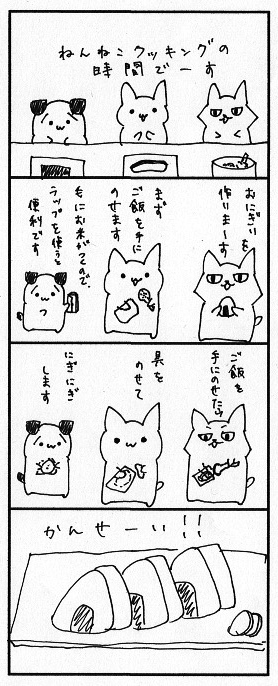 ねんねこクッキングの
時間でーす
おにぎりを
作りまーす
まず
ご飯を手に
のせます
手にお米がつくので、
ラップを使うと
便利です
ご飯を
手にのせたら
具を
のせて
にぎにぎ
します
かんせーい!!